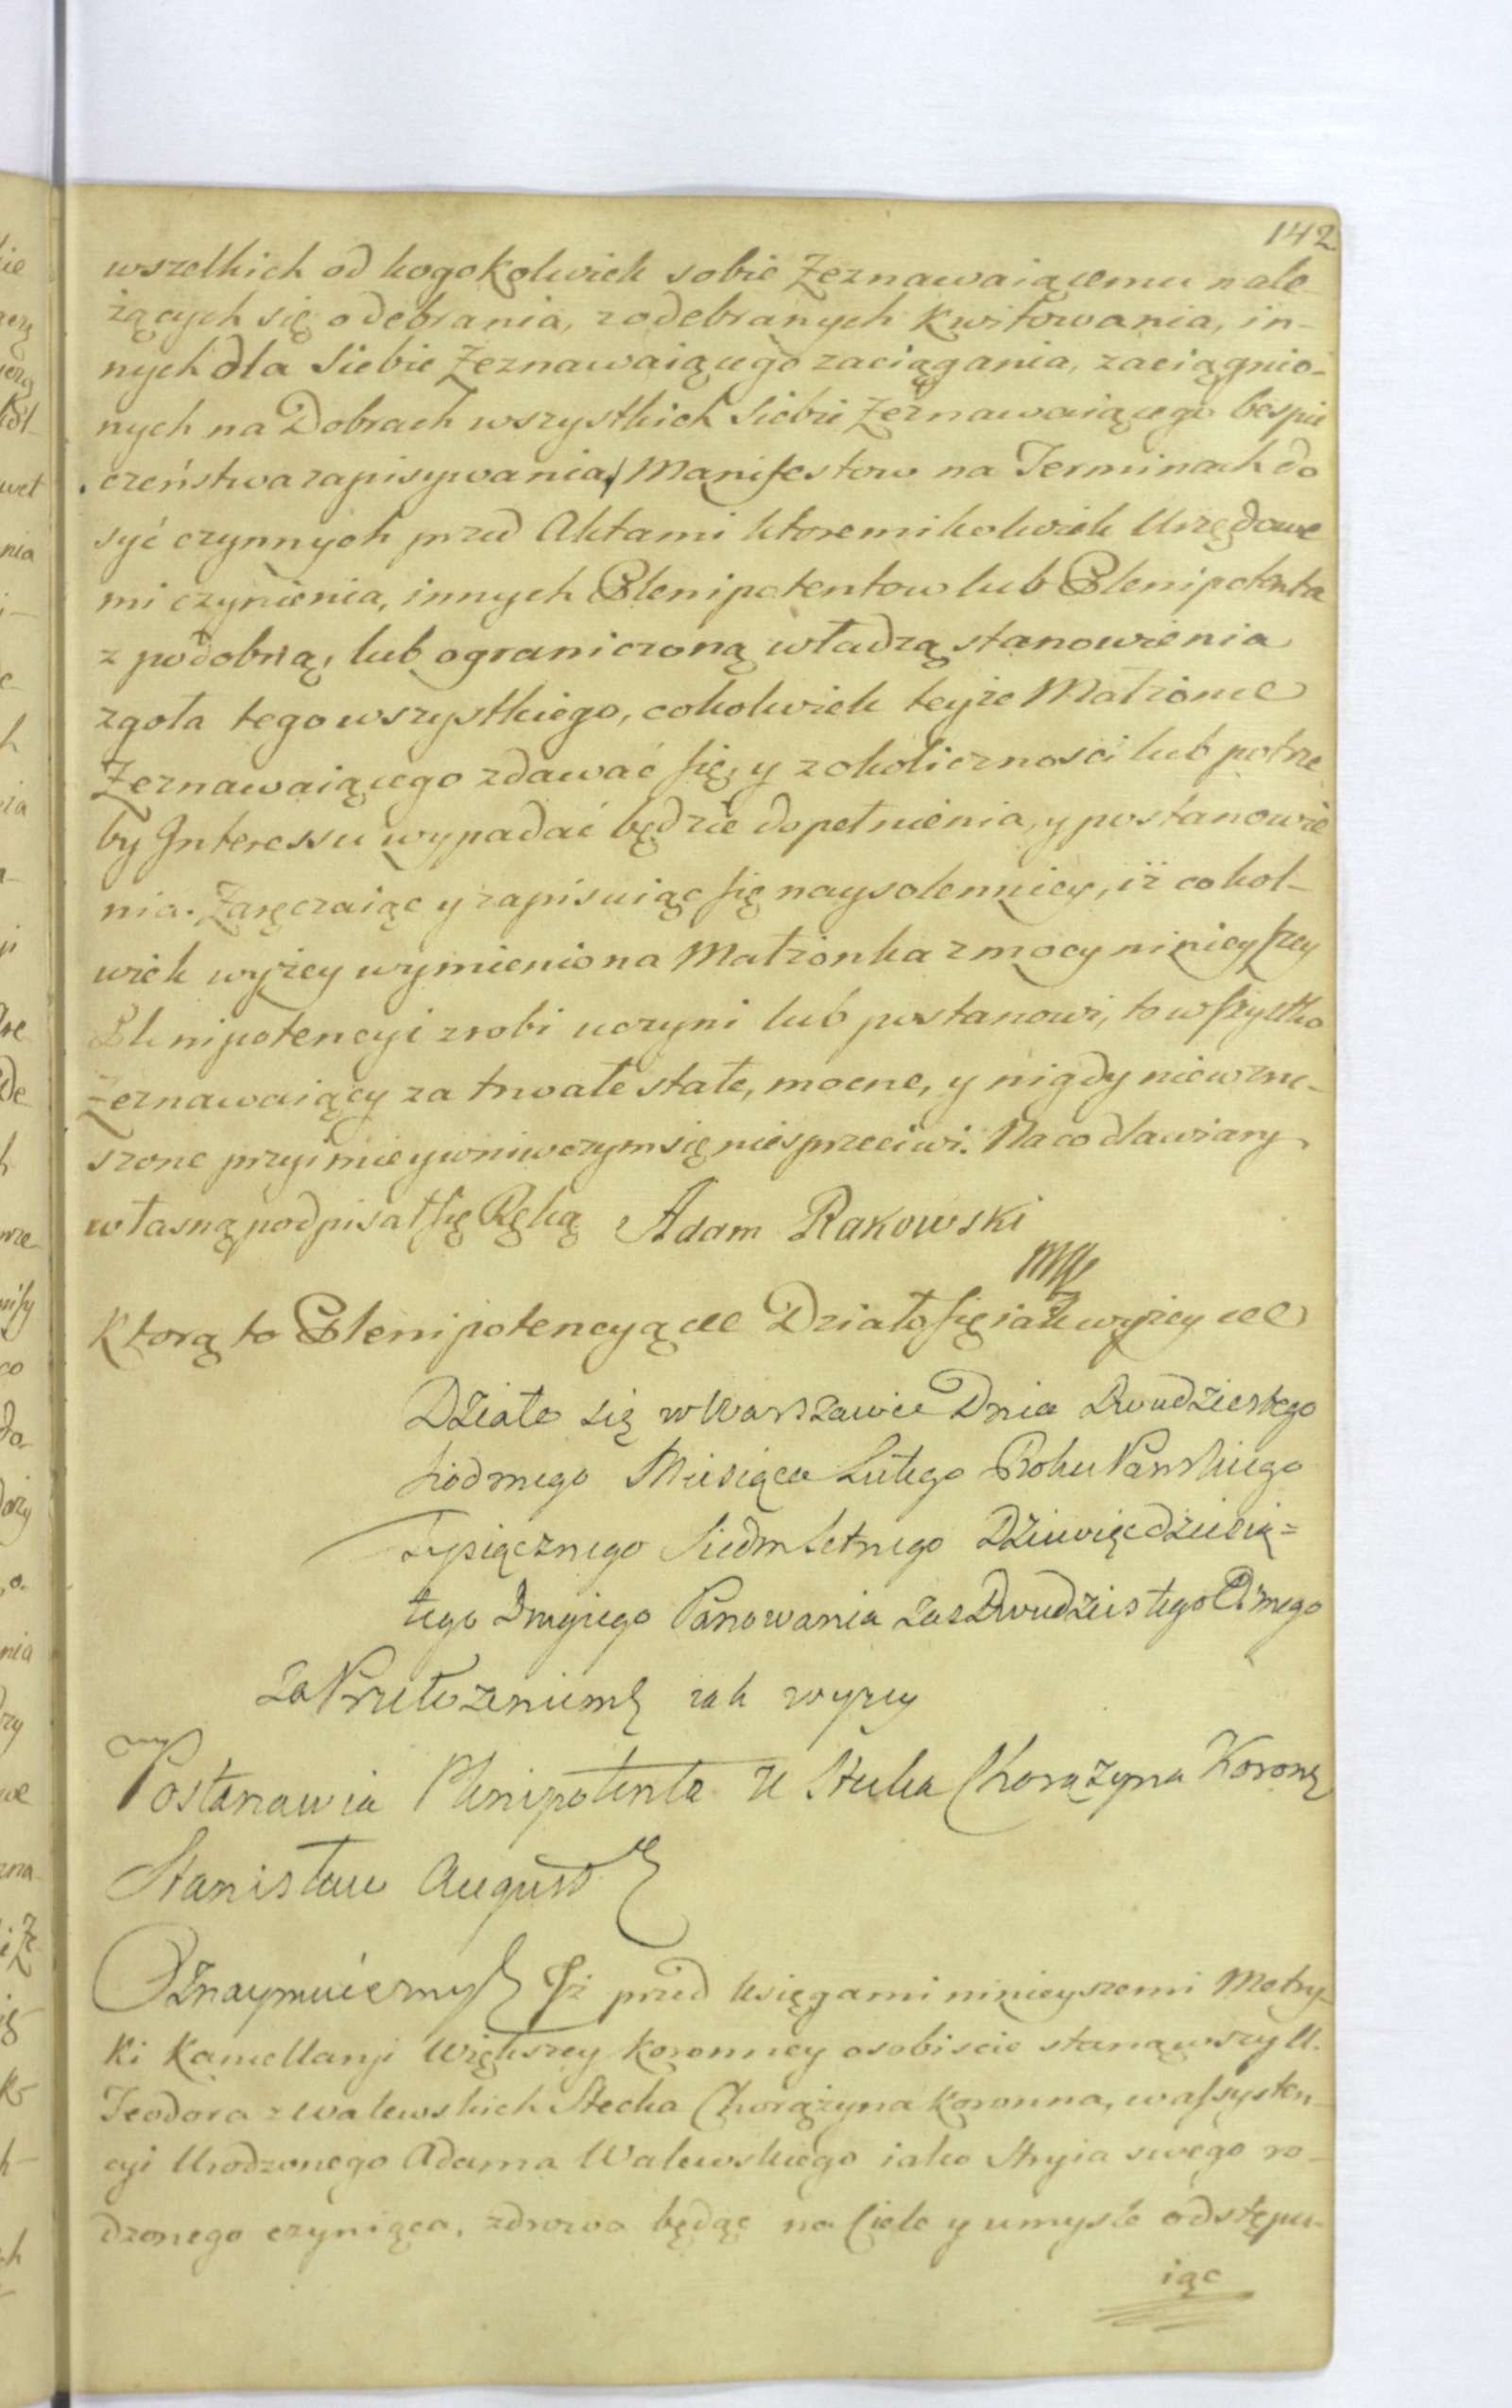 142
wszelkich od kogokolwiek sobie Zeznawaiącemu nale-
żących się odebrania, zodebranych kwitowania, in-
nych dla Siebie Zeznawaiącego zaciągania, zaciągnio-
nych na Dobrach wszystkich Siebie Zeznawaiącego bespie
czeństwa zapisywania, Manifestow na Terminach do
syć czynnych przed Aktami ktoremikolwiek Urzędowe
mi czynienia, innych Plenipotentow lub Plenipotenta
z podobną, lub ograniczoną władzą stanowienia
zgoła tego wszystkiego, cokolwiek teyże Małżonce
Zeznawaiącego zdawać się, y z okoliczności lub potrze
by Interessu wypadać będzie dopełnienia, y postanowie
nia. Zaręczaiąc y zapisuiąc się naysolenniey, iż cokol-
wiek wyżey wymieniona Małżonka z mocy ninieyszey
Plenipotencyi zrobi uczyni lub postanowi, to wszystko
Zeznawaiący za trwałe stałe, mocne, y nigdy niewzru-
szone przyimie y wniwczym się niesprzeciwi. Na co dla wiary
własną podpisał się Ręką Adam Rakowski
mp
Ktorą to Plenipotencyą etc Działo się iak wyżey etc
Działo się w Warszawie Dnia Dwudziestego
Siodmego Miesiąca Lutego Roku Pańskiego
Tysiącznego Siedmsetnego Dziewiędziesią=
tego Drugiego Panowania zas Dwudziestego Osmego
Za Przełożeniem iak wyzey
Postanawia Plenipotenta U Stecka Chorążyna Koronn
Stanisław August
Oznaymuiemy Iż przed księgami ninieyszemi Metry-
ki Kancellaryi Większey Koronney osobiscie stanąwszy U.
Teodora z Walewskich Stecka Chorążyna Koronna, w assysten-
cyi Urodzonego Adama Walewskiego iako Stryia swego ro-
dzonego czyniąca, zdrowa będąc na Ciele y umysle odstępu-
iąc